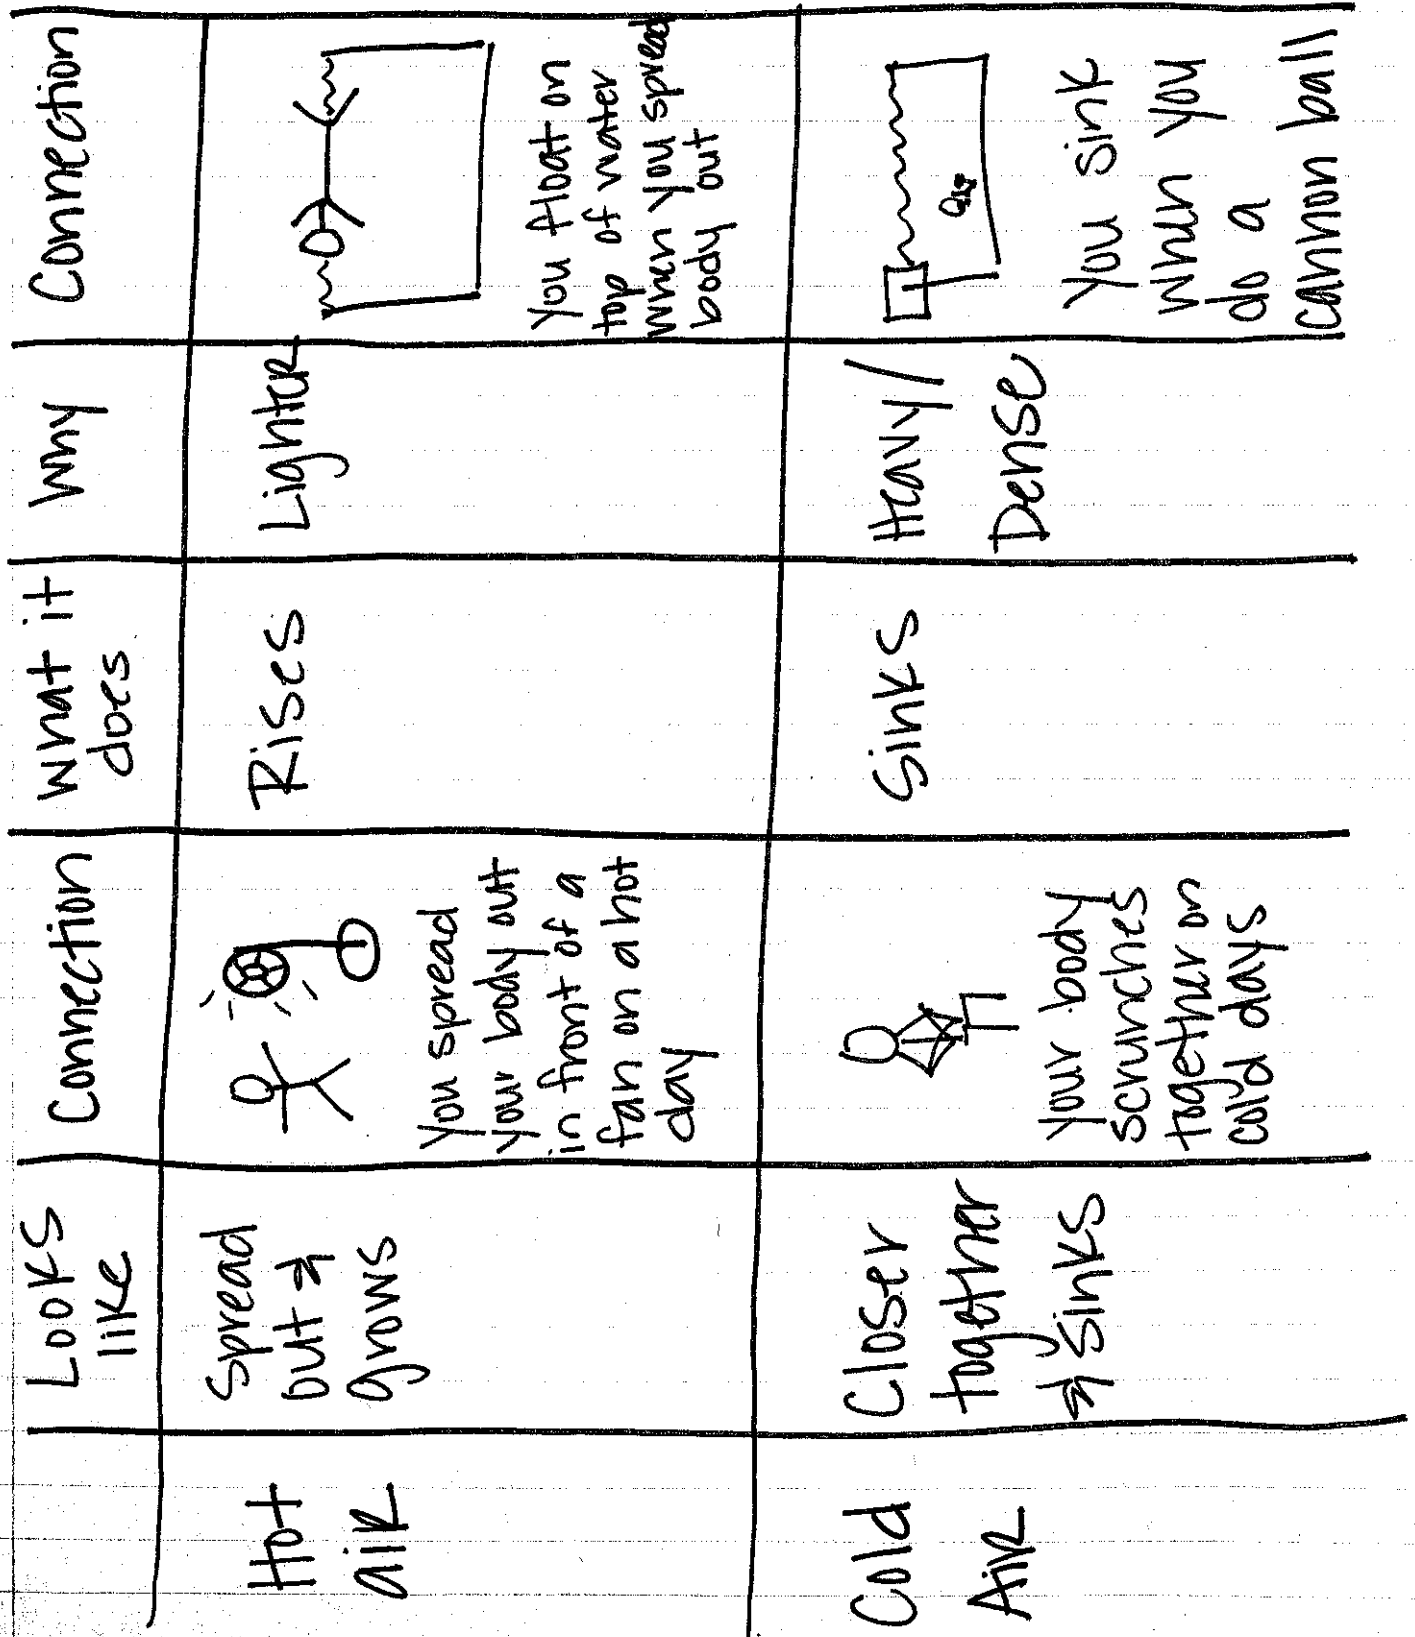 Looks
like
Connection
What it
does
Why
Connection
Hot
air
Spread
out &
grows
You spread
your body out
in front of a
fan on a hot
day
Rises
Lighter
You float on
top of water
when you spread
body out
Cold
Air
Closer
together
& Sinks
Your body
scrunches
together on
cold days
Sinks
Heavy/
Dense
You sink
when you
do a
cannon ball